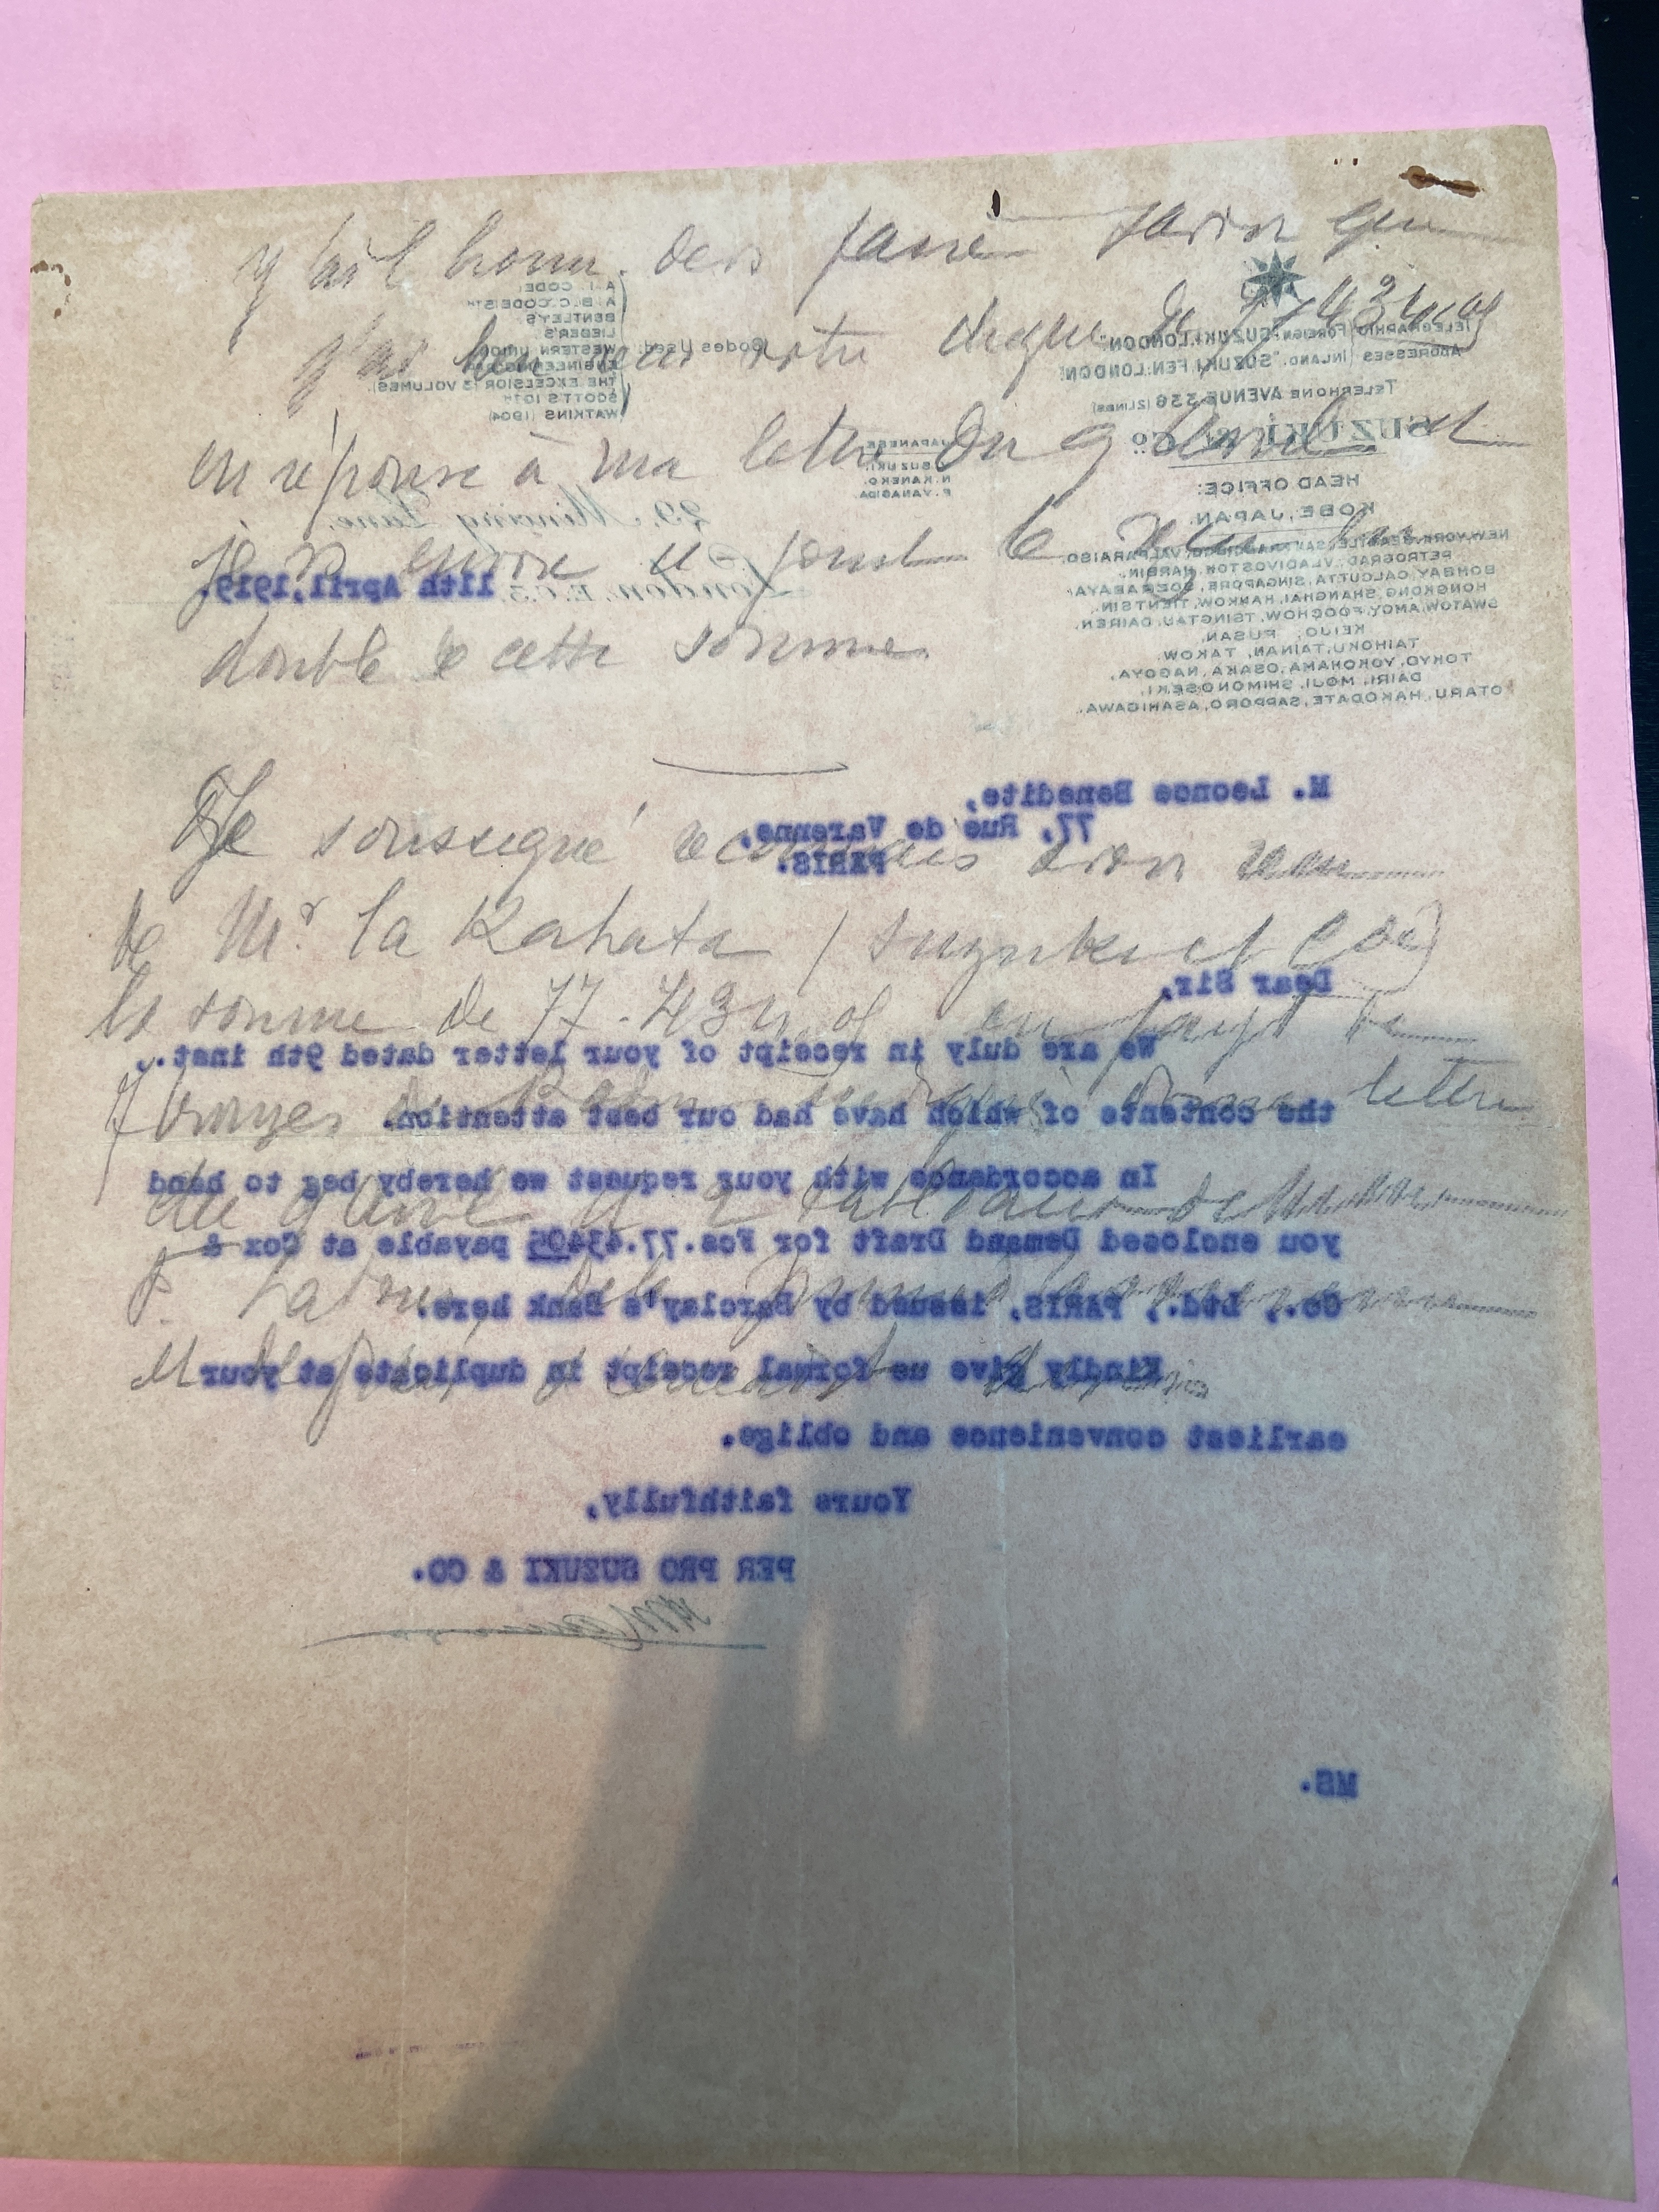 j'ai l'honn. de vs faire savoir que
j'ai bien reçu votre cheque de 77.434.05
en réponse à ma lettre du 9 Avril et
je vs envoie ci joint le recu en
double de cette somme.
Je soussigné reconnais avoir recu
de Mr. la Kahata (Suzuki et Co)
la somme de 77.434.05 en payt de
7 bronzes de Rodin lettre
du 9 Avril et 2 tableaux de
P.
et
TELEGRAPHIC ADDRESSES (FOREIGN. "SUZUKI, LONDON."
(INLAND. "SUZUKI, FEN, LONDON."
TELEPHONE AVENUE 336 (2 LINES)
SUZUKI & CO.
HEAD OFFICE:
KOBE, JAPAN.
NEW YORK, SEATTLE, SAN FRANCISCO, VALPARAISO.
PETROGRAD, VLADIVOSTOK, HARBIN.
BOMBAY, CALCUTTA, SINGAPORE, SOERABAYA,
HONGKONG, SHANGHAI, HANKOW, TIENTSIN,
SWATOW, AMOY, FOOCHOW, TSINGTAU, DAIREN.
KEIJO, FUSAN,
TAIHOKU, TAINAN, TAKOW.
TOKYO, YOKOHAMA, OSAKA, NAGOYA,
DAIRI, MOJI, SHIMONOSEKI,
OTARU, HAKODATE, SAPPORO, ASAHIGAWA.
Codes Used:
A.I. CODE.
A.B.C. CODE 5TH
BENTLEY'S
LIEBER'S
WESTERN UNION
ENGINEERING
THE EXCELSIOR (3 VOLUMES)
SCOTTS 10TH
WATKINS (1904)
JAPANESE
SUZUKI.
N. KANEKO.
F. YANAGIDA
29, Mincing Lane,
London, E.C.3.
11th April, 1919.
M. Leonce Benedite,
77, Rue de Varenne,
PARIS.
Dear Sir,
We are duly in receipt of your letter dated 9th inst.,
the contents of which have had our best attention.
In accordance with your request we hereby beg to hand
you enclosed Demand Draft for Fcs.77.43405 payable at Cox &
Co., Ltd., PARIS, issued by Barclay's Bank here.
Kindly give us formal receipt in duplicate at your
earliest convenience and oblige.
Yours faithfully,
PER PRO SUZUKI & CO.
MS.